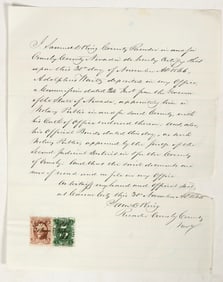 I Samuel D. King County Recorder in and for
Ormsby County Nevada do hereby Certify that
upon this 30th day of November A.D. 1866,
Adolphus Waitz deposited in my Office
a Commission dated from the Governor
of the State of Nevada, appointing him a
Notary Public in and for said County, with
his Oath of Office endorsed thereon and also
his Official Bond dated this day, as such
Notary Public approved by the Judge of the
Second Judicial District in for the County
of Ormsby. And that the said documents are
now of record and on file in my Office.
In testimony my hand and Official Seal,
at Carson City this 30th November A.D. 1866
Saml D. King
Recorder Ormsby County